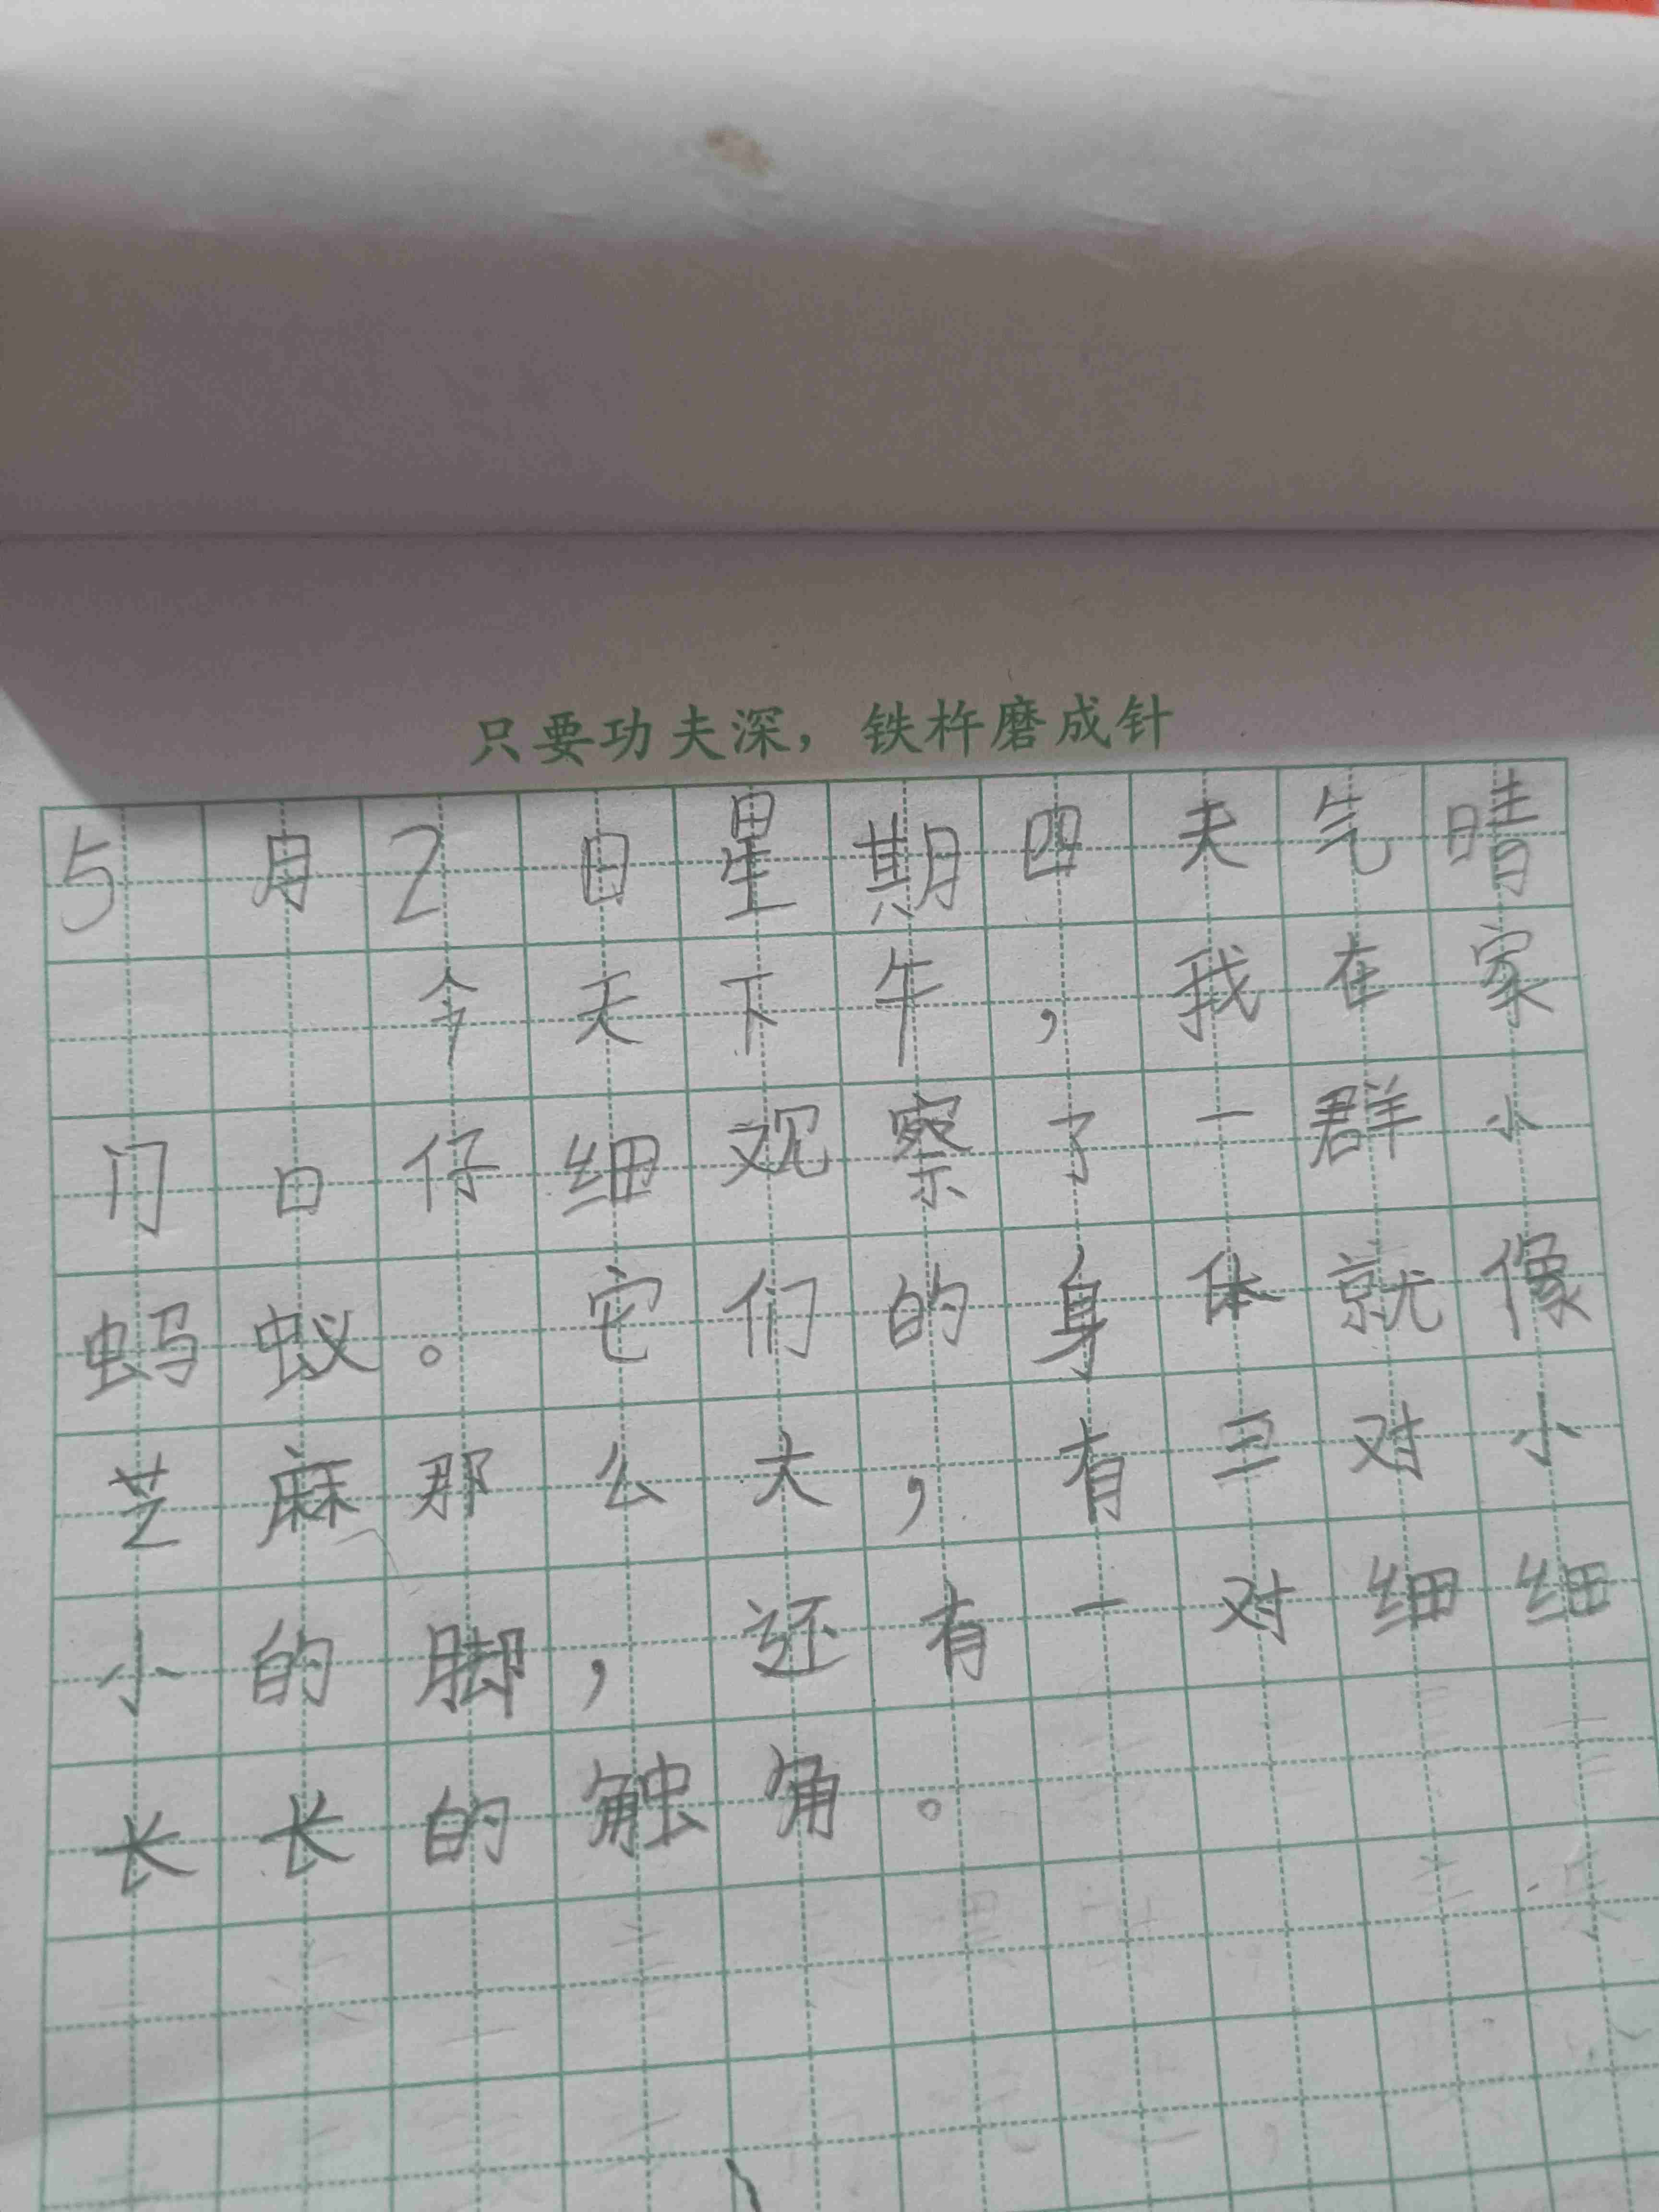 只要功夫深，铁杵磨成针
5月2日星期四天气晴
今天下午，我在家
门口仔细观察了一群小
蚂蚁。它们的身体就像
芝麻那么大，有三对小
小的脚，还有一对细细
长长的触角。